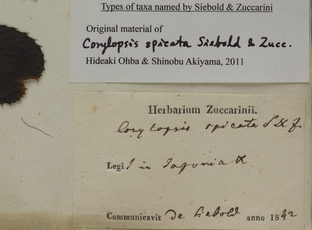 Types of taxa named by Siebold & Zuccarini
Original material of
Corylopsis spicata Siebold & Zucc.
Hideaki Ohba & Shinobu Akiyama, 2011
Herbarium Zuccarinii.
Corylopsis spicata S & Z.
Legi in Japonia
Communicavit De Siebold anno 1842